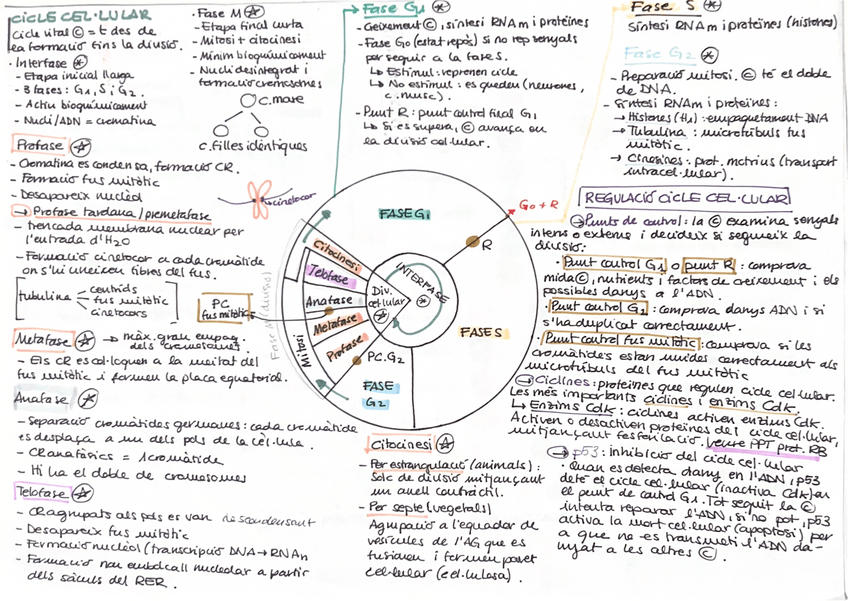 CICLE CEL·LULAR
Cicle vital © = t des de
la formació fins la divisió.
· Interfase
- Etapa inicial llarga
- 3 fases: G1, S i G2.
- Actiu bioquímicament
- Nucli/ADN = cromatina
· Fase M
- Etapa final curta
- Mitosi + citocinesi
- Mínim bioquímicament
- Nucli desintegrat i
formació cromosomes
c. mare
c. filles idèntiques
Profase
- Cromatina es condensa, formació CR.
- Formació fus mitòtic
- Desapareix nuclèol
→ Profase tardana / prometafase
- trencada membrana nuclear per
l'entrada d'H2O
- Formació cinetocor a cada cromàtide
on s'hi uneixen fibres del fus.
cinetocor
tubulina
centríols
fus mitòtic
cinetocors
PC
fus mitòtic
Metafase → màx. grau empaq.
dels cromosomes.
- Els CR es col·loquen a la meitat del
fus mitòtic i formen la placa equatorial.
Anafase
- Separació cromàtides germanes: cada cromàtide
es desplaça a un dels pols de la cèl·lula.
- CR anafàsics = 1 cromàtide
- Hi ha el doble de cromosomes
Telofase
- CR agrupats als pols es van descondensant
- Desapareix fus mitòtic
- Formació nuclèol (transcripció DNA → RNAn
- Formació nou embolcall nuclear a partir
dels sàculs del RER.
Fase G1
- Creixement ©, síntesi RNAm i proteïnes
- Fase G0 (estat repòs) si no rep senyals
per seguir a la fase S.
↳ Estímul: reprenen cicle
↳ No estímul: es queden (neurones,
c. musc.)
- Punt R: punt control final G1
↳ Si es supera, © avança en
la divisió cel·lular.
FASE G1
G0 + R
R
INTERFASE
FASE S
FASE
G2
PC. G2
Div.
cel·lular
Citocinesi
Telofase
Anafase
Metafase
Profase
Mitosi
Fase M (divisió)
Citocinesi
- Per estrangulació (animals):
Solc de divisió mitjançant
un anell contràctil.
- Per septe (vegetals)
Agrupació a l'equador de
vesícules de l'AG que es
fusionen i formen paret
cel·lular (cel·lulosa).
Fase S
Síntesi RNAm i proteïnes (histones)
Fase G2
- Preparació mitosi. © té el doble
de DNA.
- Síntesi RNAm i proteïnes:
→ Histones (H1): empaquetament DNA
→ Tubulina: microtúbuls fus
mitòtic.
→ Cinesines: prot. motrius (transport
intracel·lular).
REGULACIÓ CICLE CEL·LULAR
→ Punts de control: la © examina senyals
interns o externs i decideix si segueix la
divisió:
· Punt control G1 o punt R: comprova
mida ©, nutrients i factors de creixement i els
possibles danys a l'ADN.
· Punt control G2: comprova danys ADN i si
s'ha duplicat correctament.
· Punt control fus mitòtic: comprova si les
cromàtides estan unides correctament als
microtúbuls del fus mitòtic
→ Ciclines: proteïnes que regulen cicle cel·lular.
Les més importants ciclines i enzims Cdk.
↳ Enzims Cdk: ciclines activen enzims Cdk.
Activen o desactiven proteïnes del cicle cel·lular,
mitjançant fosforilació. veure PPT prot. RB
→ p53: inhibició del cicle cel·lular
· Quan es detecta dany en l'ADN, p53
deté el cicle cel·lular (inactiva Cdk) en
el punt de control G1. Tot seguit la ©
intenta reparar l'ADN, si no pot, p53
activa la mort cel·lular (apoptosi) per
a que no es transmeti l'ADN da-
nyat a les altres ©.